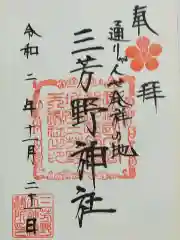 奉拝
通りゃんせ発祥の地
三芳野神社
令和二年十一月二十二日